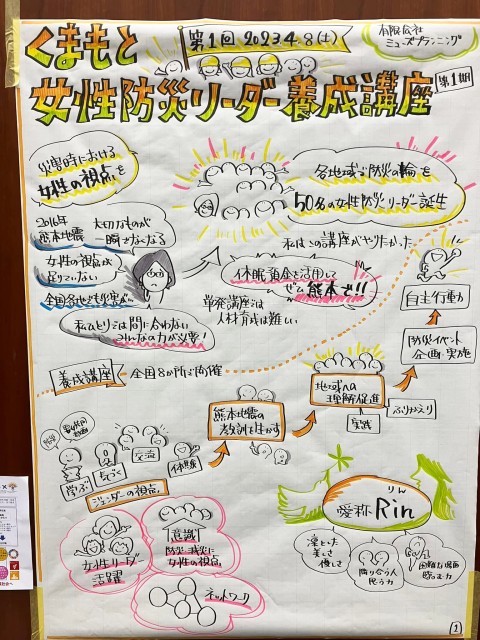 くまもと
第1回 2023.4.8(土)
有限会社
ミューズプランニング
女性防災リーダー養成講座
第1期
災害時における
女性の視点を
各地域で防災の輪を
50名の女性防災リーダー誕生
2016年
熊本地震
大切なものが
一瞬でなくなる
私はこの講座がやりたかった
女性の視点が
足りていない
休眠預金を活用して
ぜひ熊本で!!
全国各地で災害が…
単発講座では
人材育成は難しい
私ひとりでは間に合わない
みんなの力が必要!
自主行動力
防災イベント
企画・実施
養成講座
全国8ヶ所で開催
地域への
理解促進
ふりかえり
実践
熊本地震の
教訓を生かす
交流
体験
学ぶ
気づく
ジェンダーの視点
愛称 Rin
りん
女性リーダー
活躍
意識
防災・減災に
女性の視点
凛とした
美しさ
優しさ
隣り合う人
思う力
困難な場面
臨む力
ネットワーク
1